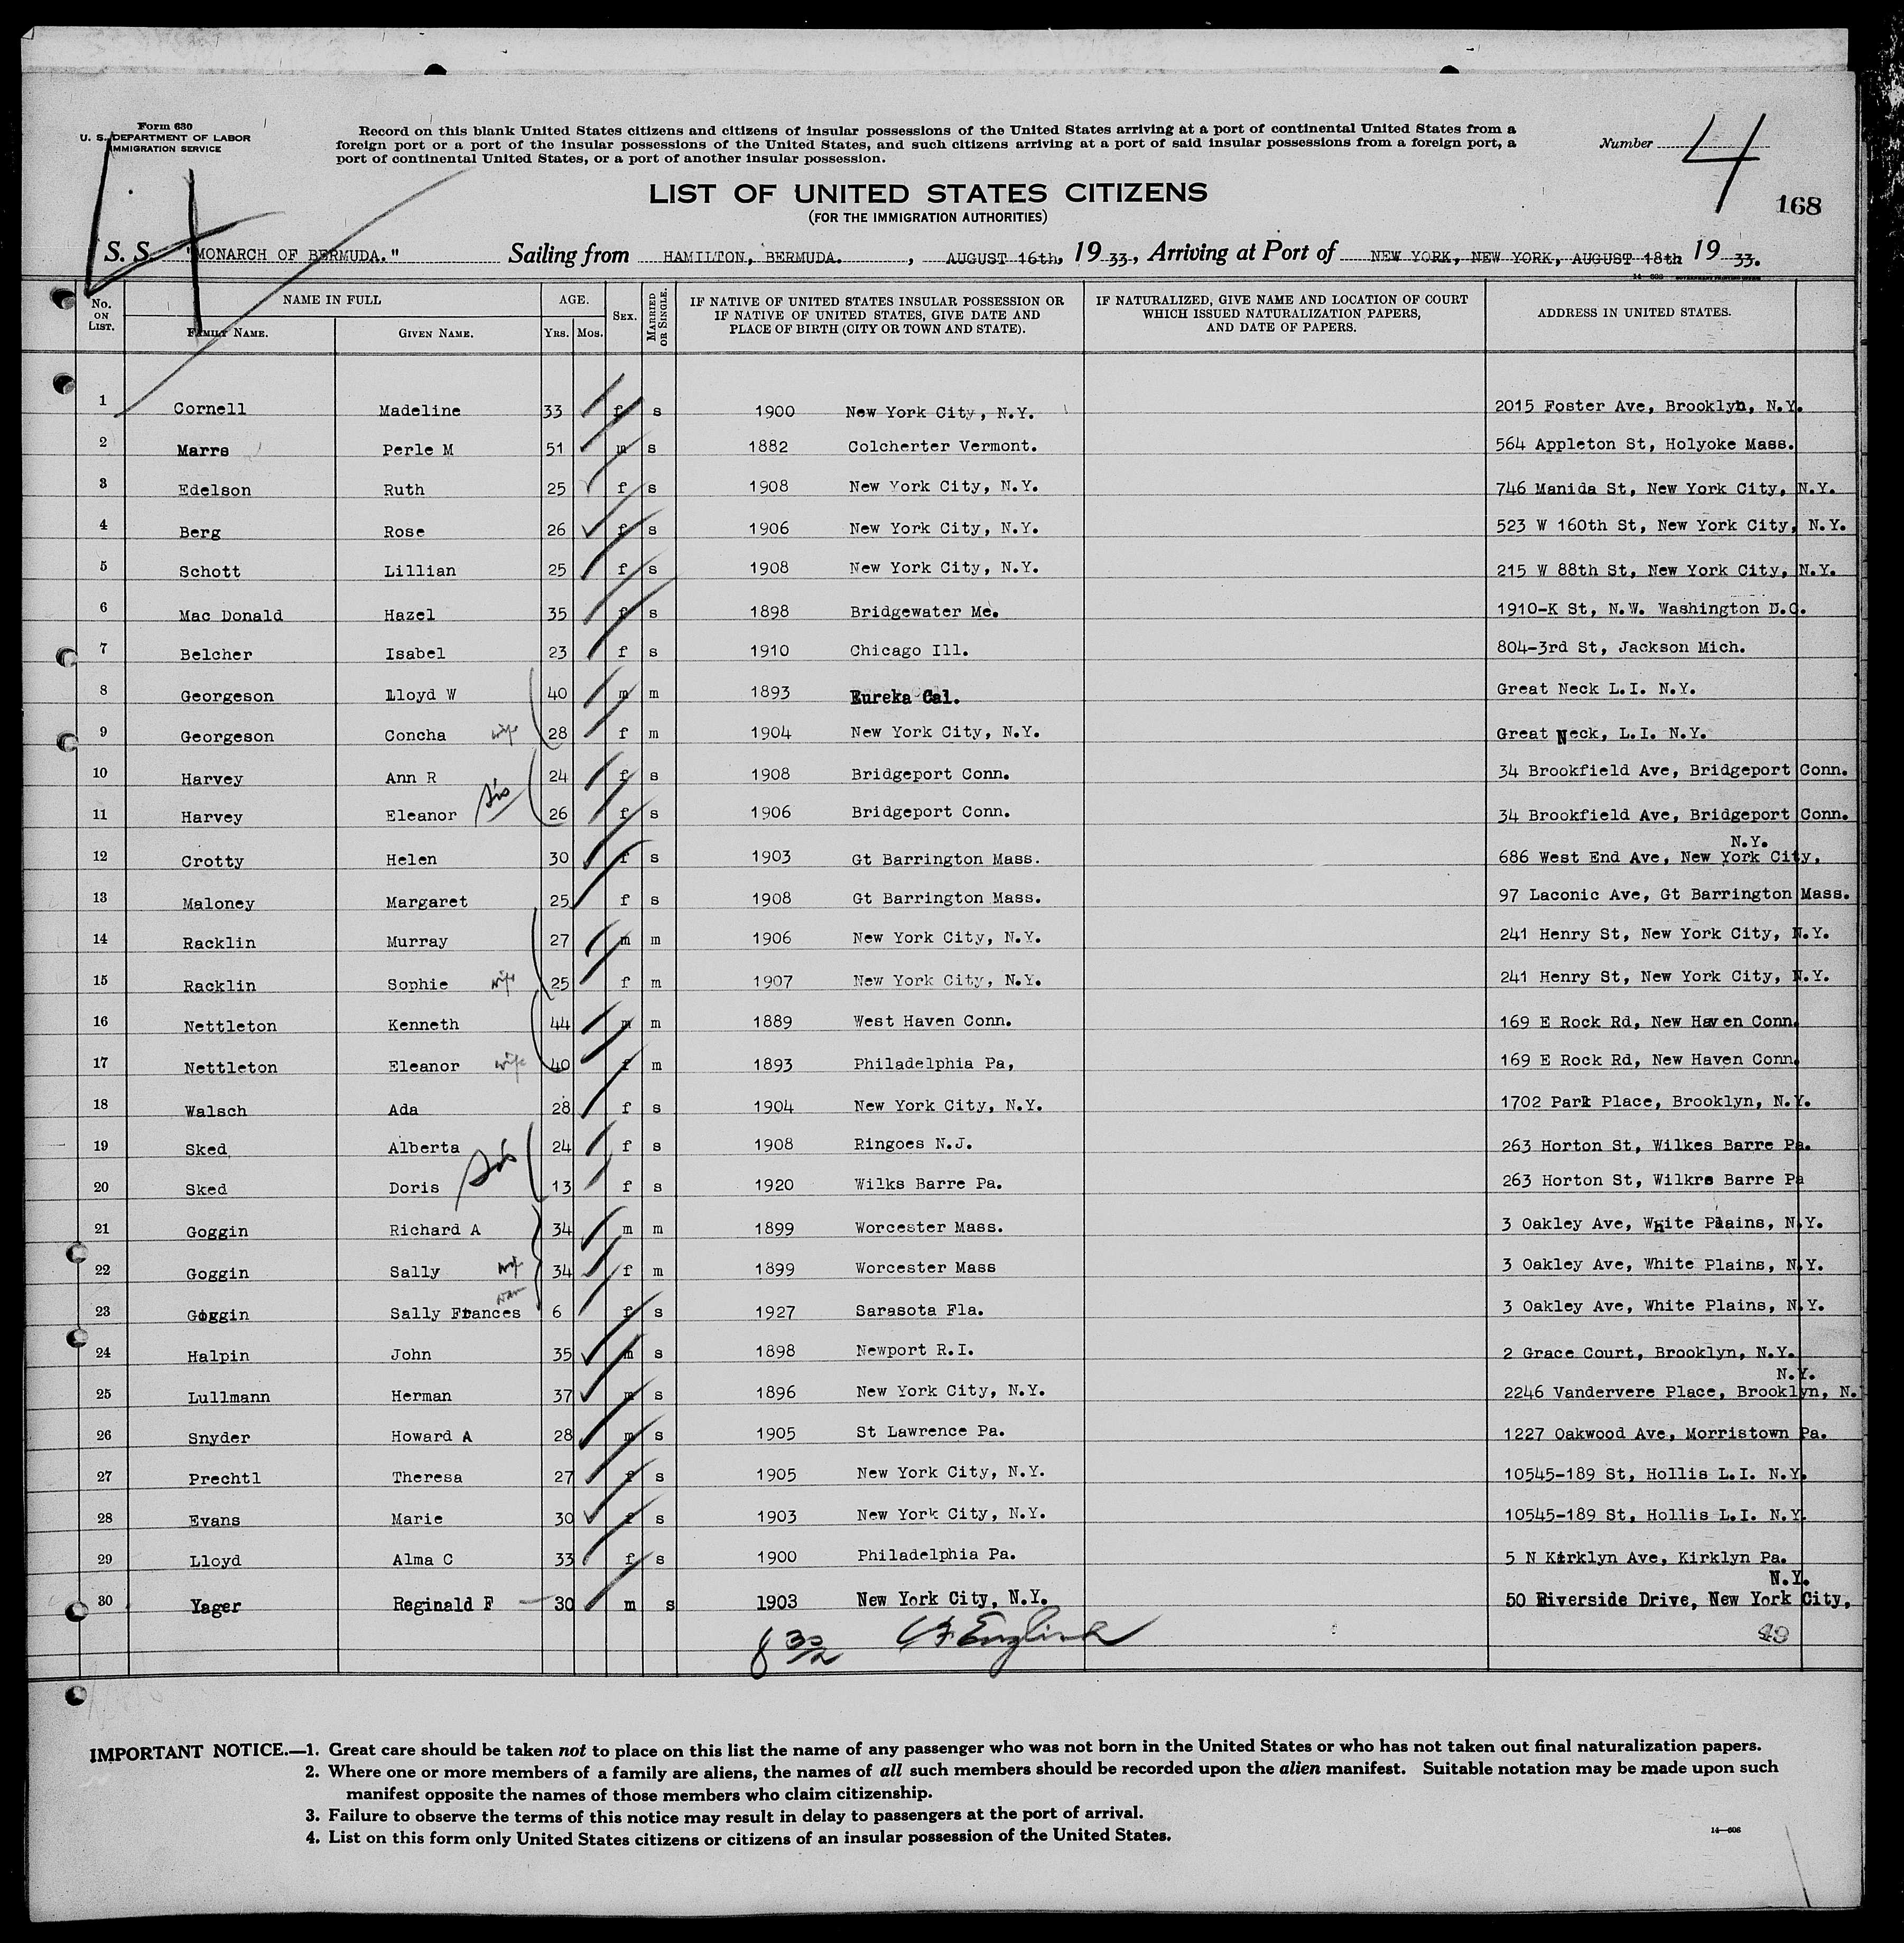 Form 630
U. S. DEPARTMENT OF LABOR
IMMIGRATION SERVICE
Record on this blank United States citizens and citizens of insular possessions of the United States arriving at a port of continental United States from a
foreign port or a port of the insular possessions of the United States, and such citizens arriving at a port of said insular possessions from a foreign port, a
port of continental United States, or a port of another insular possession.
Number 4
168
LIST OF UNITED STATES CITIZENS
(FOR THE IMMIGRATION AUTHORITIES)
S. S. "MONARCH OF BERMUDA." Sailing from HAMILTON, BERMUDA. , AUGUST 16th, 19 33, Arriving at Port of NEW YORK, NEW YORK, AUGUST 18th 19 33.
No. ON LIST. NAME IN FULL FAMILY NAME. GIVEN NAME. AGE. YRS. MOS. SEX. MARRIED OR SINGLE. IF NATIVE OF UNITED STATES INSULAR POSSESSION OR IF NATIVE OF UNITED STATES, GIVE DATE AND PLACE OF BIRTH (CITY OR TOWN AND STATE). IF NATURALIZED, GIVE NAME AND LOCATION OF COURT WHICH ISSUED NATURALIZATION PAPERS, AND DATE OF PAPERS. ADDRESS IN UNITED STATES.
1 Cornell Madeline 33 f s 1900 New York City, N.Y. 2015 Foster Ave, Brooklyn, N.Y.
2 Marrs Perle M 51 m s 1882 Colcherter Vermont. 564 Appleton St, Holyoke Mass.
3 Edelson Ruth 25 f s 1908 New York City, N.Y. 746 Manida St, New York City, N.Y.
4 Berg Rose 26 f s 1906 New York City, N.Y. 523 W 160th St, New York City, N.Y.
5 Schott Lillian 25 f s 1908 New York City, N.Y. 215 W 88th St, New York City, N.Y.
6 Mac Donald Hazel 35 f s 1898 Bridgewater Me. 1910-K St, N.W. Washington D.C.
7 Belcher Isabel 23 f s 1910 Chicago Ill. 804-3rd St, Jackson Mich.
8 Georgeson Lloyd W 40 m m 1893 Eureka Cal. Great Neck L.I. N.Y.
9 Georgeson Concha wife 28 f m 1904 New York City, N.Y. Great Neck, L.I. N.Y.
10 Harvey Ann R 24 f s 1908 Bridgeport Conn. 34 Brookfield Ave, Bridgeport Conn.
11 Harvey Eleanor sis 26 f s 1906 Bridgeport Conn. 34 Brookfield Ave, Bridgeport Conn.
12 Crotty Helen 30 f s 1903 Gt Barrington Mass. 686 West End Ave, New York City, N.Y.
13 Maloney Margaret 25 f s 1908 Gt Barrington Mass. 97 Laconic Ave, Gt Barrington Mass.
14 Racklin Murray 27 m m 1906 New York City, N.Y. 241 Henry St, New York City, N.Y.
15 Racklin Sophie wife 25 f m 1907 New York City, N.Y. 241 Henry St, New York City, N.Y.
16 Nettleton Kenneth 44 m m 1889 West Haven Conn. 169 E Rock Rd, New Haven Conn.
17 Nettleton Eleanor wife 40 f m 1893 Philadelphia Pa, 169 E Rock Rd, New Haven Conn.
18 Walsch Ada 28 f s 1904 New York City, N.Y. 1702 Park Place, Brooklyn, N.Y.
19 Sked Alberta 24 f s 1908 Ringoes N.J. 263 Horton St, Wilkes Barre Pa.
20 Sked Doris sis 13 f s 1920 Wilks Barre Pa. 263 Horton St, Wilkre Barre Pa
21 Goggin Richard A 34 m m 1899 Worcester Mass. 3 Oakley Ave, White Plains, N.Y.
22 Goggin Sally wife 34 f m 1899 Worcester Mass 3 Oakley Ave, White Plains, N.Y.
23 Goggin Sally Frances 6 f s 1927 Sarasota Fla. 3 Oakley Ave, White Plains, N.Y.
24 Halpin John 35 m s 1898 Newport R.I. 2 Grace Court, Brooklyn, N.Y.
25 Lullmann Herman 37 m s 1896 New York City, N.Y. 2246 Vandervere Place, Brooklyn, N. N.Y.
26 Snyder Howard A 28 m s 1905 St Lawrence Pa. 1227 Oakwood Ave, Morristown Pa.
27 Prechtl Theresa 27 f s 1905 New York City, N.Y. 10545-189 St, Hollis L.I. N.Y.
28 Evans Marie 30 f s 1903 New York City, N.Y. 10545-189 St, Hollis L.I. N.Y.
29 Lloyd Alma C 33 f s 1900 Philadelphia Pa. 5 N Kirklyn Ave, Kirklyn Pa.
30 Yager Reginald F 30 m s 1903 New York City, N.Y. 50 Riverside Drive, New York City, N.Y.
English
49
IMPORTANT NOTICE.—1. Great care should be taken not to place on this list the name of any passenger who was not born in the United States or who has not taken out final naturalization papers.
2. Where one or more members of a family are aliens, the names of all such members should be recorded upon the alien manifest. Suitable notation may be made upon such
manifest opposite the names of those members who claim citizenship.
3. Failure to observe the terms of this notice may result in delay to passengers at the port of arrival.
4. List on this form only United States citizens or citizens of an insular possession of the United States.
14—606